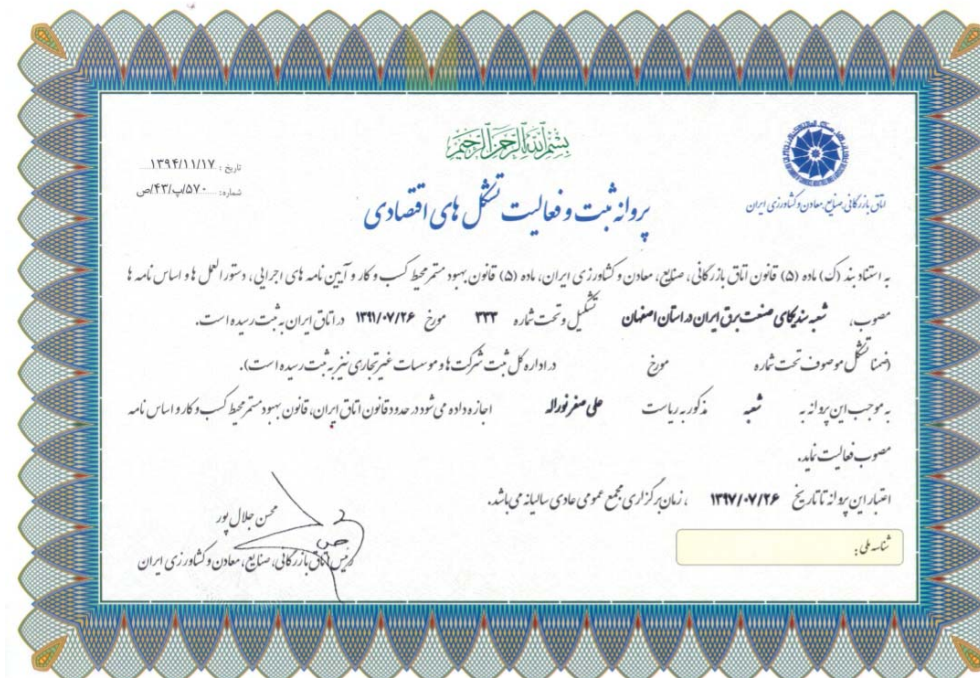 بسم الله الرحمن الرحیم
تاریخ : ۱۳۹۴/۱۱/۱۷
شماره: ۵۷۰/پ/۴۳/ص
اتاق بازرگانی، صنایع، معادن و کشاورزی ایران
پروانه ثبت و فعالیت تشکل های اقتصادی
به استناد بند (ک) ماده (۵) قانون اتاق بازرگانی، صنایع، معادن و کشاورزی ایران، ماده (۵) قانون بهبود مستمر محیط کسب و کار و آیین نامه های اجرایی، دستورالعمل ها و اساس نامه ها
مصوب، شعبه سندیکای صنعت برق ایران در استان اصفهان تشکیل و تحت شماره ۳۳۳ مورخ ۱۳۹۱/۰۷/۲۶ در اتاق ایران به ثبت رسیده است.
(ضمنا تشکل موصوف تحت شماره مورخ در اداره کل ثبت شرکت ها و موسسات غیرتجاری نیز به ثبت رسیده است).
به موجب این پروانه به شعبه مذکور به ریاست علی صفر نوراله اجازه داده می شود در حدود قانون اتاق ایران، قانون بهبود مستمر محیط کسب و کار و اساس نامه
مصوب فعالیت نماید.
اعتبار این پروانه تا تاریخ ۱۳۹۷/۰۷/۲۶ ، زمان برگزاری مجمع عمومی عادی سالیانه می باشد.
شناسه ملی :
محسن جلال پور
رئیس اتاق بازرگانی، صنایع، معادن و کشاورزی ایران